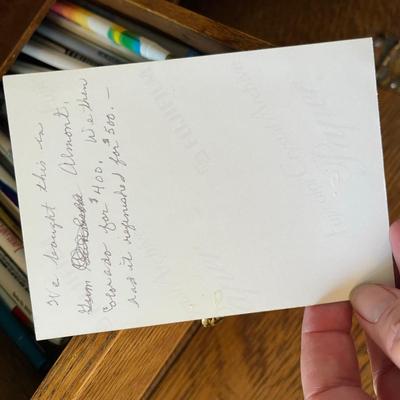 We bought this in
Almont,
Colorado for $400. We then
had it refinished for $500. —